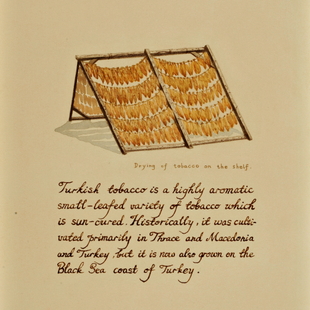 Drying of tobacco on the shelf.
Turkish tobacco is a highly aromatic
small-leafed variety of tobacco which
is sun-cured. Historically, it was culti-
vated primarily in Thrace and Macedonia
and Turkey, but it is now also grown on the
Black Sea coast of Turkey.